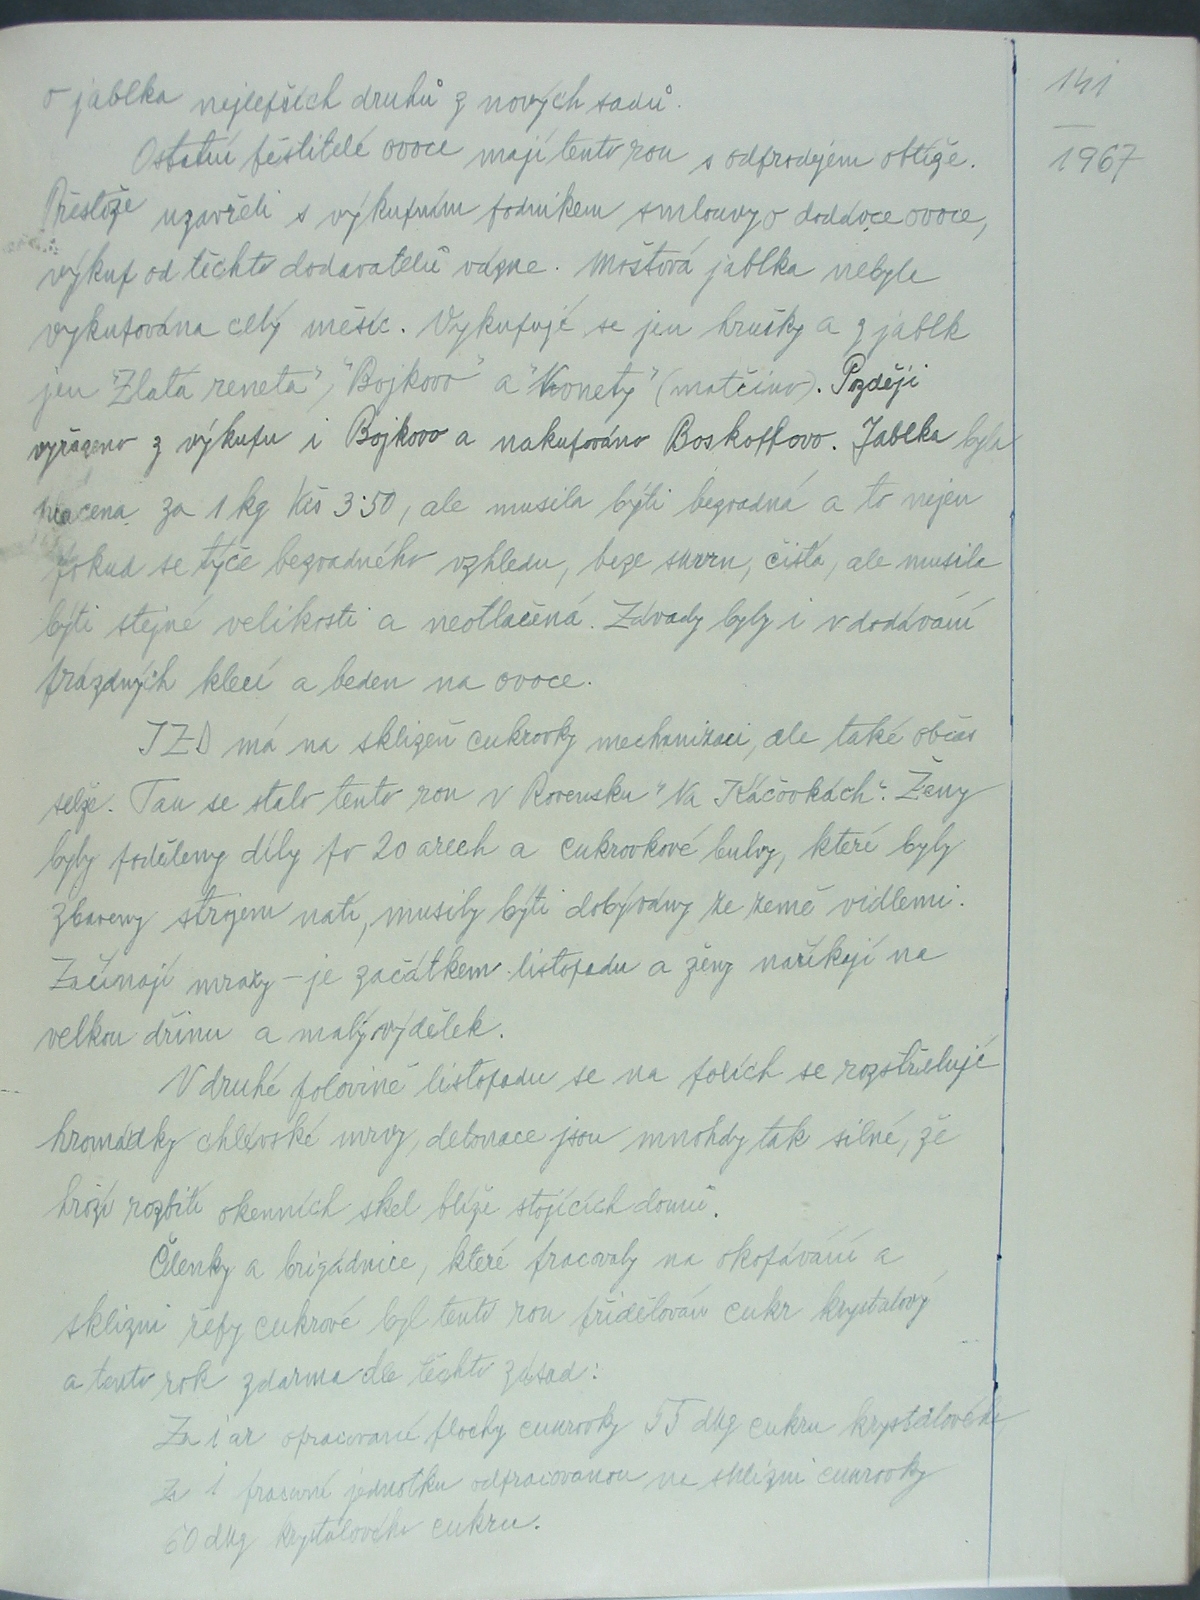 o jablka nejlepších druhů z nových sadů.
141
Ostatní pěstitelé ovoce mají tento rou s odprodejem obtíže.
1967
Přestože uzavřeli s výkupním podnikem smlouvy o dodávce ovoce,
výkup od těchto dodavatelů vázne. Moštová jablka nebyla
vykupována celý měsíc. Vykupují se jen hrušky a z jablk
jen "Zlatá reneta", "Bojkovo" a "Konety" (matčino). Později
vyřazeno z výkupu i Bojkovo a nakupováno Boskoppovo. Jablka byla
placena za 1 kg Kčs 3.50, ale musila býti bezvadná a to nejen
pokud se týče bezvadného vzhledu, beze skvrn, čistá, ale musila
býti stejné velikosti a neotlačená. Závady byly i v dodávání
prázdných klecí a beden na ovoce.
JZD má na sklizeň cukrovky mechanizaci, ale také občas
selže. Tak se stalo tento rok v Rovensku "Na Káčovkách". Ženy
byly poděleny díly po 20 arech a cukrovkové bulvy, které byly
zbaveny strojem natí, musily býti dobývány ze země vidlemi.
Začínají mrazy - je začátkem listopadu a ženy naříkají na
velkou dřinu a malý výdělek.
V druhé polovině listopadu se na polích se rozstřelují
hromádky chlévské mrvy, detonace jsou mnohdy tak silné, že
hrozí rozbití okenních skel blíže stojících domů.
Členky a brigádnice, které pracovaly na okopávání a
sklizni řepy cukrové byl tento rok přidělován cukr krystalový
a tento rok zdarma dle těchto zásad:
Za 1 ar opracované plochy cukrovky 55 dkg cukru krystalového
Za 1 pracovní jednotku odpracovanou na sklizni cukrovky
60 dkg krystalového cukru.